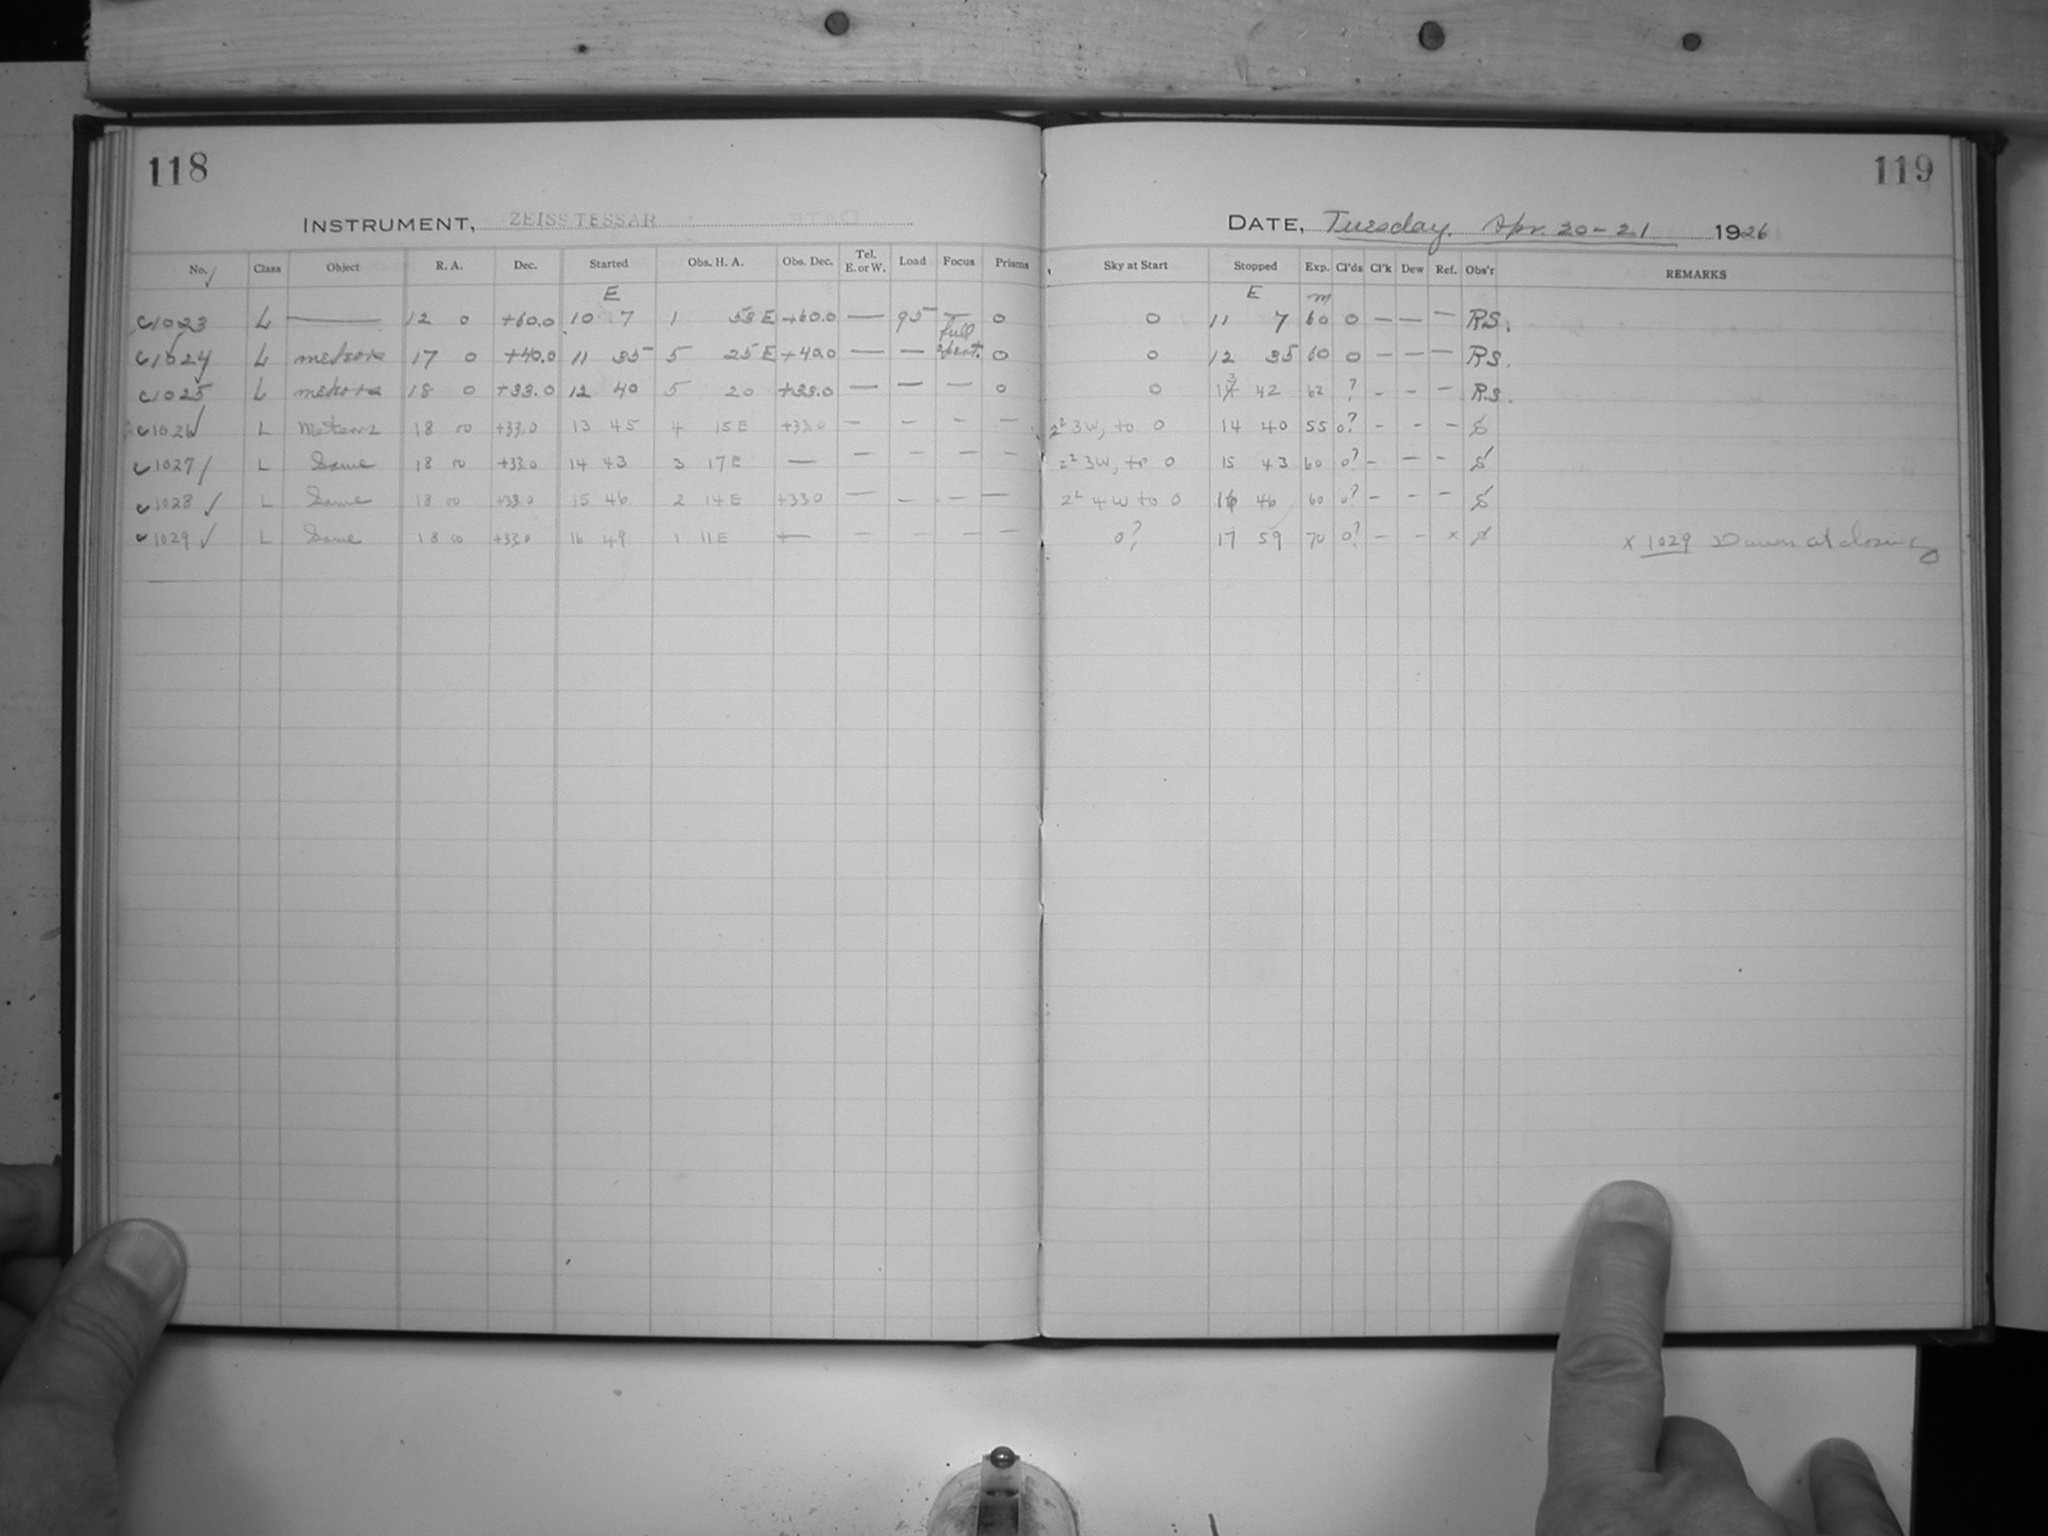 118
119
INSTRUMENT, ZEISS TESSAR
DATE, Tuesday. Apr. 20-21 1926
No. Class Object R. A. Dec. Started Obs. H. A. Obs. Dec. Tel. E. or W. Load Focus Prisms Sky at Start Stopped Exp. Cl'ds Cl'k Dew Ref. Obs'r REMARKS
E E m
c1023 L — 12 0 +60.0 10 7 1 58 E +60.0 — 95 — 0 0 11 7 60 0 — — — RS.
full
c1024 L meteors 17 0 +40.0 11 35 5 25 E +40.0 — — apert. 0 0 12 35 60 0 — — — RS.
c1025 L meteors 18 0 +33.0 12 40 5 20 +33.0 — — — 0 0 13 42 62 ? - - - R.S.
c1026 L Meteors 18 00 +33.0 13 45 4 15 E +33.0 — - - — 2² 3W, to 0 14 40 55 0? - - -
c1027 L Same 18 00 +33.0 14 43 3 17 E — — - - — 2² 3W, to 0 15 43 60 0? - — -
c1028 L Same 18 00 +33.0 15 46 2 14 E +33.0 — - - — 2² 4W to 0 16 46 60 0? - - -
c1029 L Same 18 00 +33.0 16 49 1 11 E — — - - — 0? 17 59 70 0? - - x x 1029 Dawn at closing